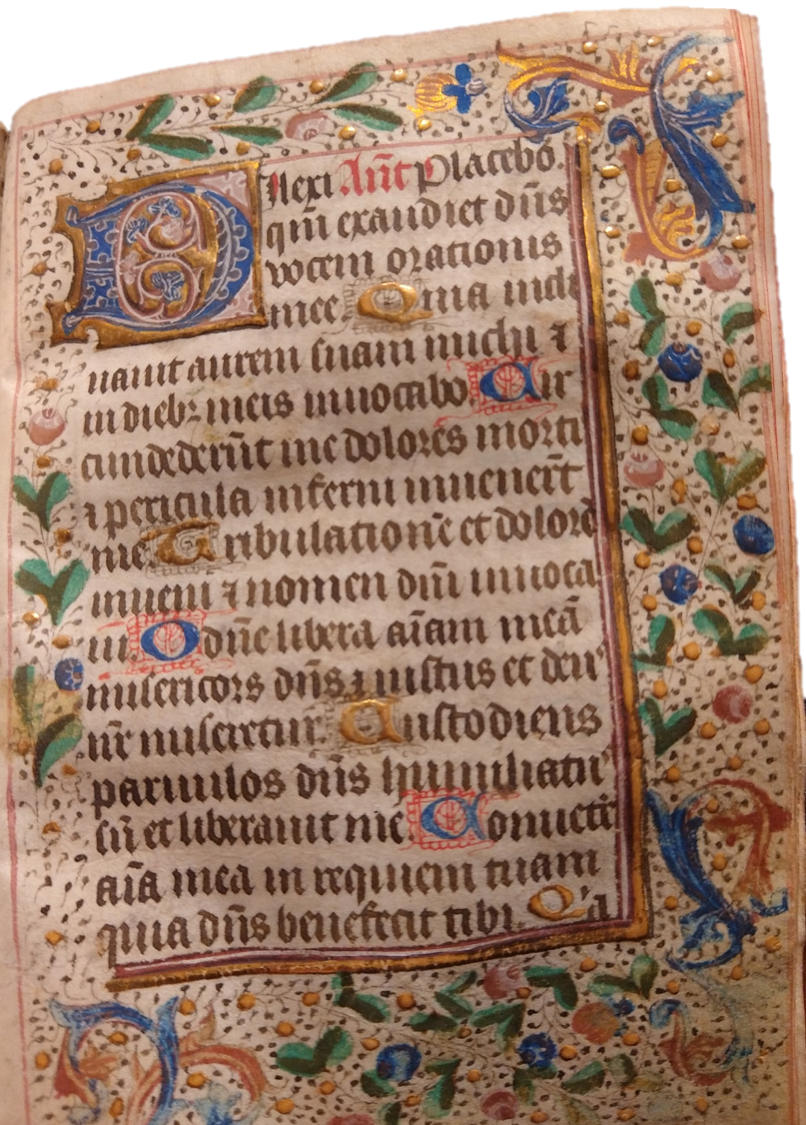 Dilexi Añt Placebo.
qm̄ exaudiet dn̄s
vocem orationis
mee Quia incli
nauit aurem suam michi ⁊
in dieb; meis inuocabo Cir
cundederūt me dolores morti
⁊ pericula inferni inuenerūt
me Tribulationē et dolorē
inueni ⁊ nomen dn̄i inuoca
ui. O dn̄e libera aīam meā
misericors dn̄s ⁊ iustus et deꝰ
nr̄ miseretur. Custodiens
paruulos dn̄s humiliatꝰ
sū et liberauit me Conuerte
aīa mea in requiem tuam
quia dn̄s benefecit tibi. Q̄a